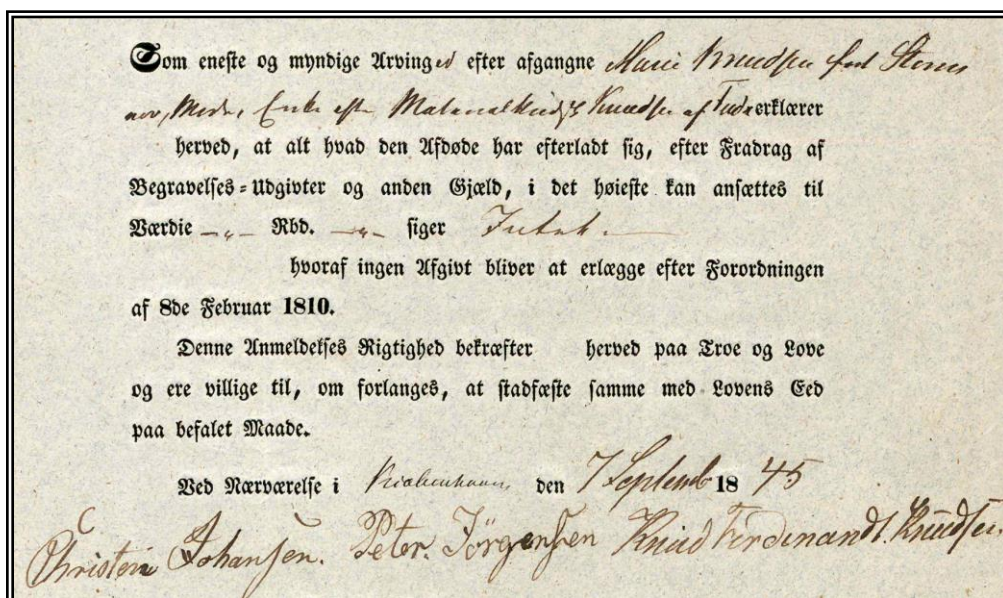 Som eneste og myndige Arvinger efter afgangne Marie Knudsen født
Enke efter Knudsen af erklærer
herved, at alt hvad den Afdøde har efterladt sig, efter Fradrag af
Begravelses-Udgivter og anden Gjæld, i det høieste kan ansættes til
Værdie -„- Rbd. -„- siger Intet.
hvoraf ingen Afgivt bliver at erlægge efter Forordningen
af 8de Februar 1810.
Denne Anmeldelses Rigtighed bekræfter herved paa Troe og Love
og ere villige til, om forlanges, at stadfæste samme med Lovens Eed
paa befalet Maade.
Ved Nærværelse i Kiøbenhavn den 7 Septemb 1845
Christen Johansen. Peter. Jörgensen Knud Ferdinandt. Knudsen.